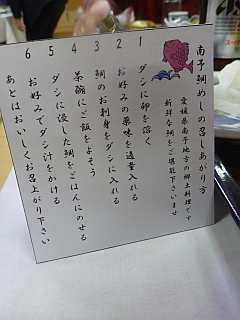 南予鯛めしの召しあがり方
愛媛県南予地方の郷土料理です
新鮮な鯛をご堪能下さいませ
1 ダシに卵を溶く
2 お好みの薬味を適量入れる
3 鯛のお刺身をダシに入れる
4 茶碗にご飯をよそう
5 ダシに浸した鯛をごはんにのせる
6 お好みでダシ汁をかける
あとはおいしくお召上がり下さい